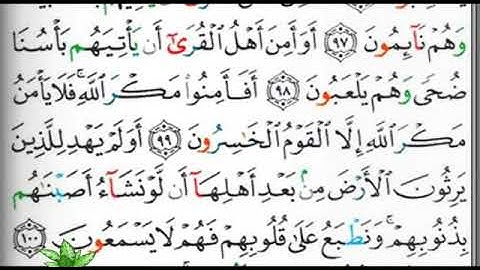 وَهُمْ نَآئِمُونَ ٩٧ أَوَأَمِنَ أَهْلُ ٱلْقُرَىٰٓ أَن يَأْتِيَهُم بَأْسُنَا
ضُحًى وَهُمْ يَلْعَبُونَ ٩٨ أَفَأَمِنُوا۟ مَكْرَ ٱللَّهِ ۚ فَلَا يَأْمَنُ
مَكْرَ ٱللَّهِ إِلَّا ٱلْقَوْمُ ٱلْخَـٰسِرُونَ ٩٩ أَوَلَمْ يَهْدِ لِلَّذِينَ
يَرِثُونَ ٱلْأَرْضَ مِنۢ بَعْدِ أَهْلِهَآ أَن لَّوْ نَشَآءُ أَصَبْنَـٰهُم
بِذُنُوبِهِمْ ۚ وَنَطْبَعُ عَلَىٰ قُلُوبِهِمْ فَهُمْ لَا يَسْمَعُونَ ١٠٠